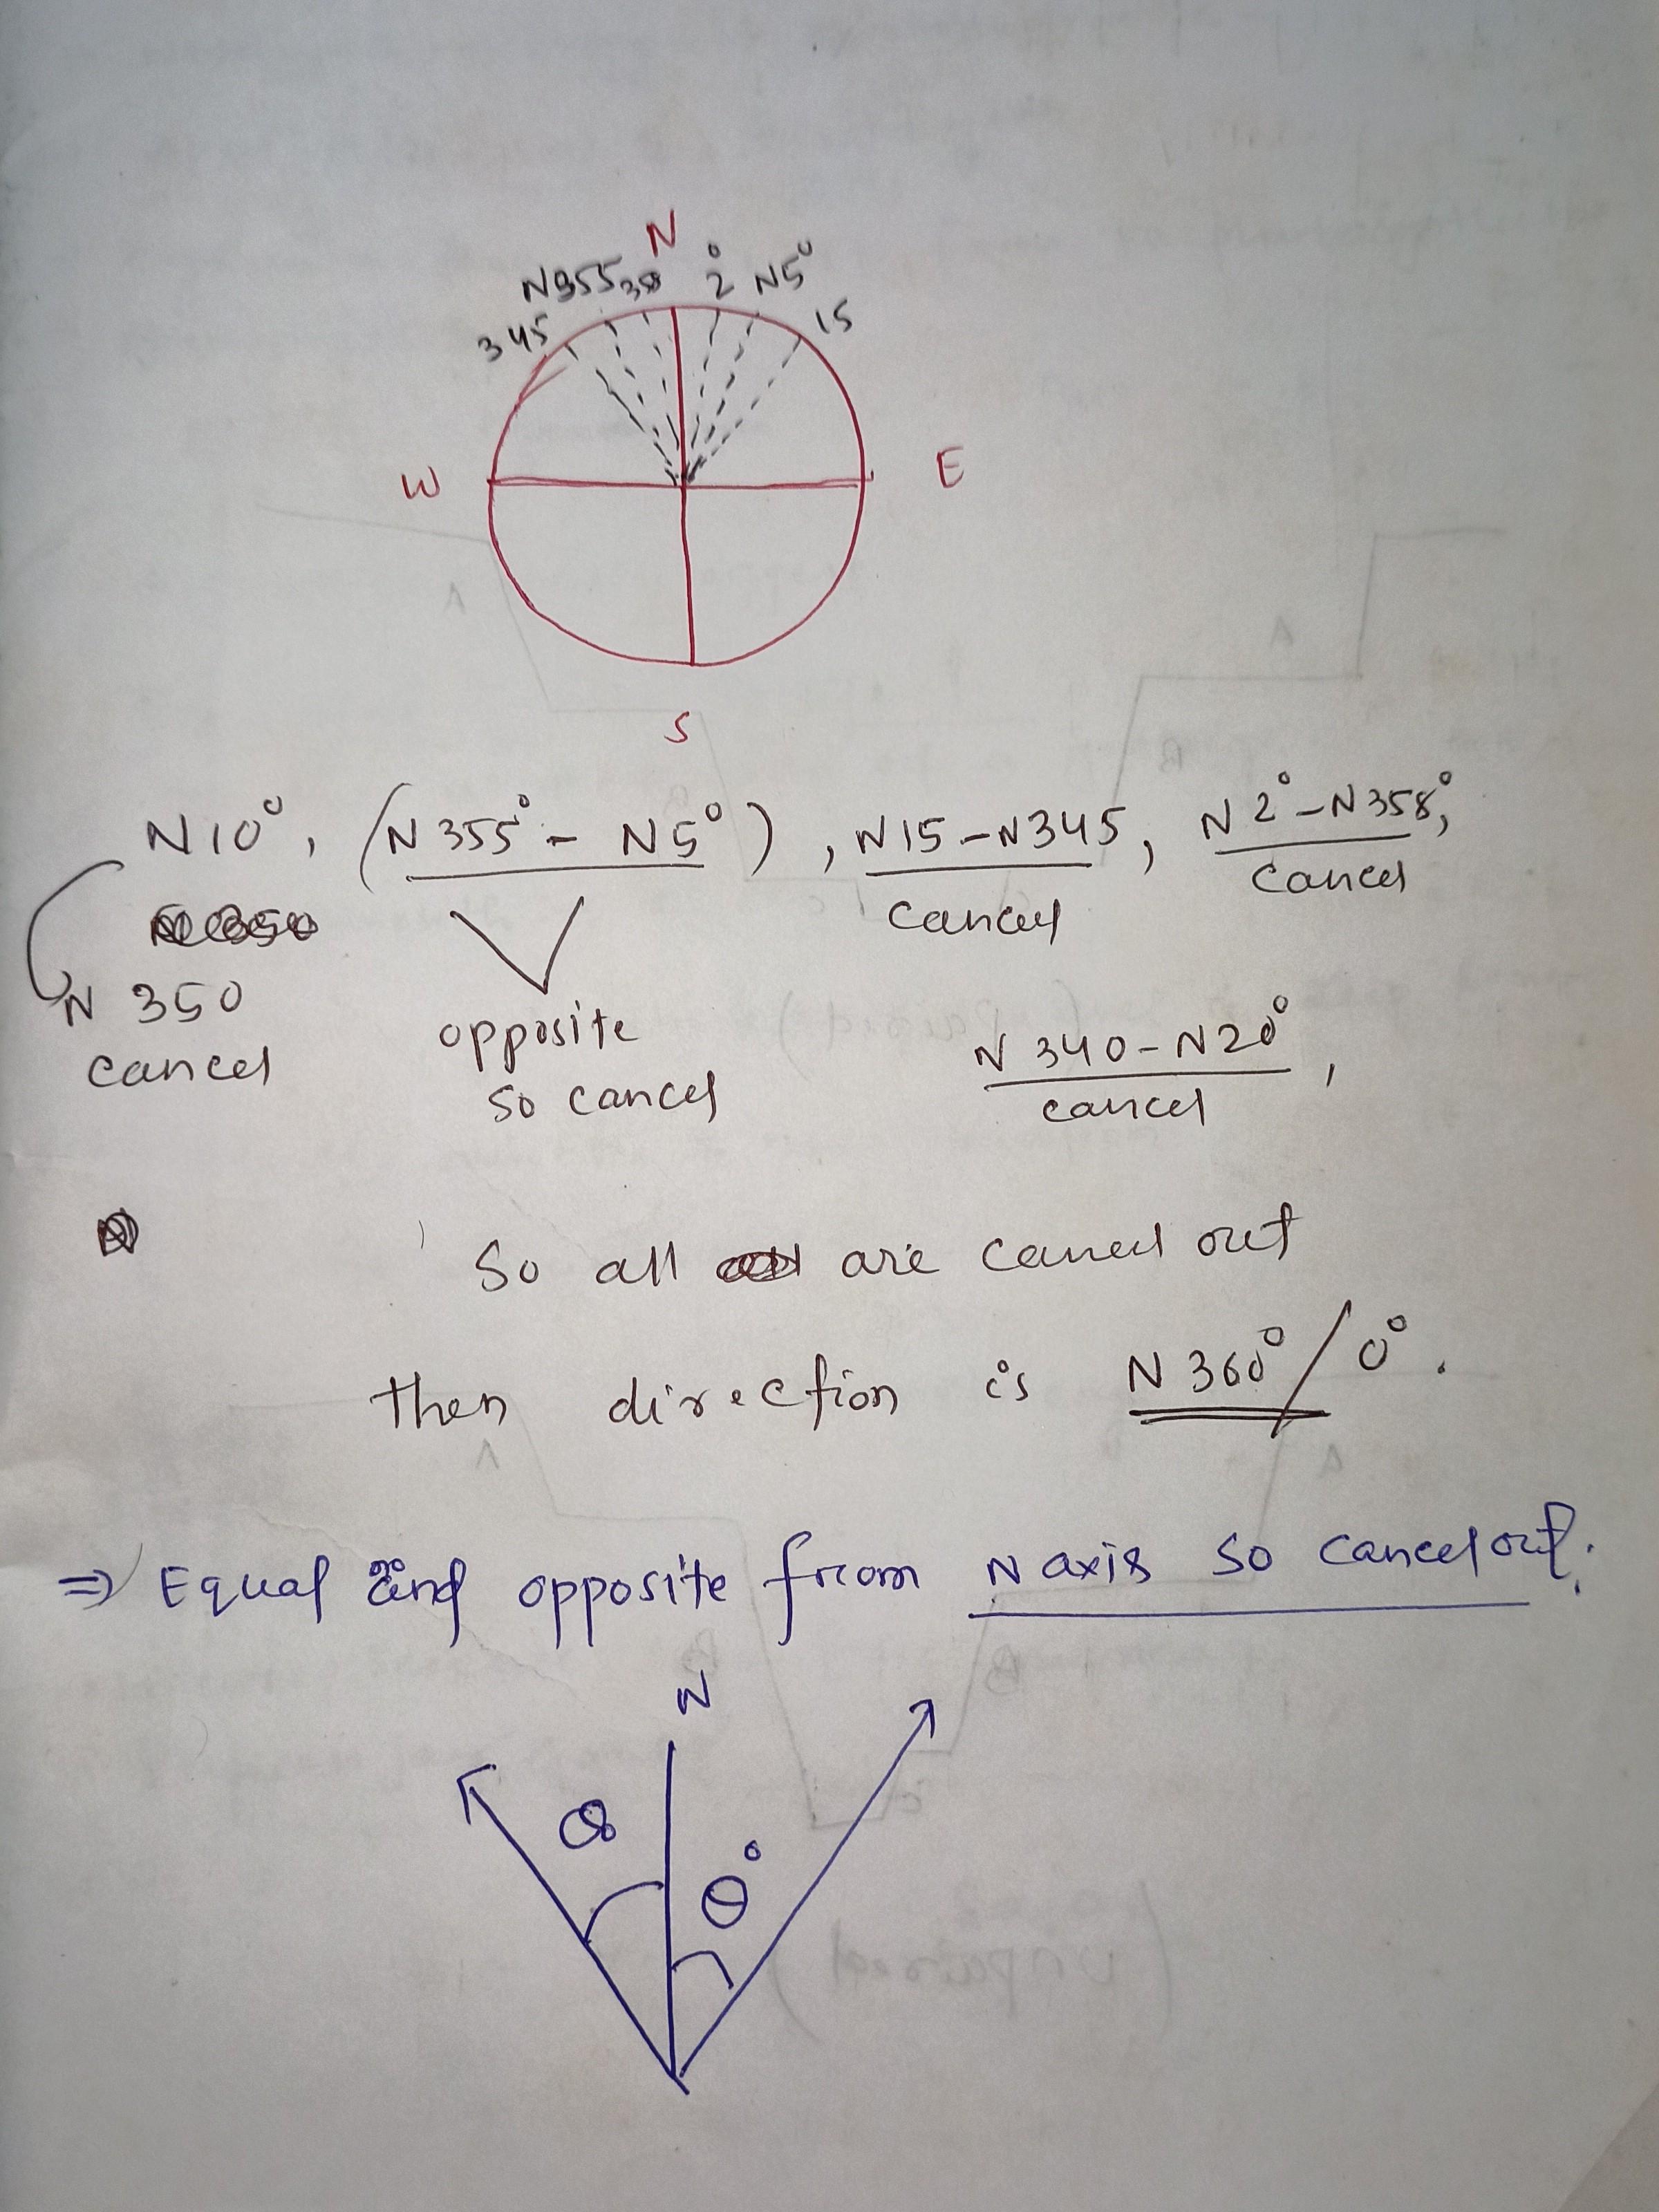 N
N355 358 2° N5°
345 15
W E
S
N10°, (N355° - N5°), N15-N345, N2°-N358°,
cancel
cancel
N 350
cancel
opposite
so cancel
N 340-N20°,
cancel
So all are cancel out
then direction is N360°/0°.
⇒ Equal and opposite from N axis so cancel out.
N
θ θ°